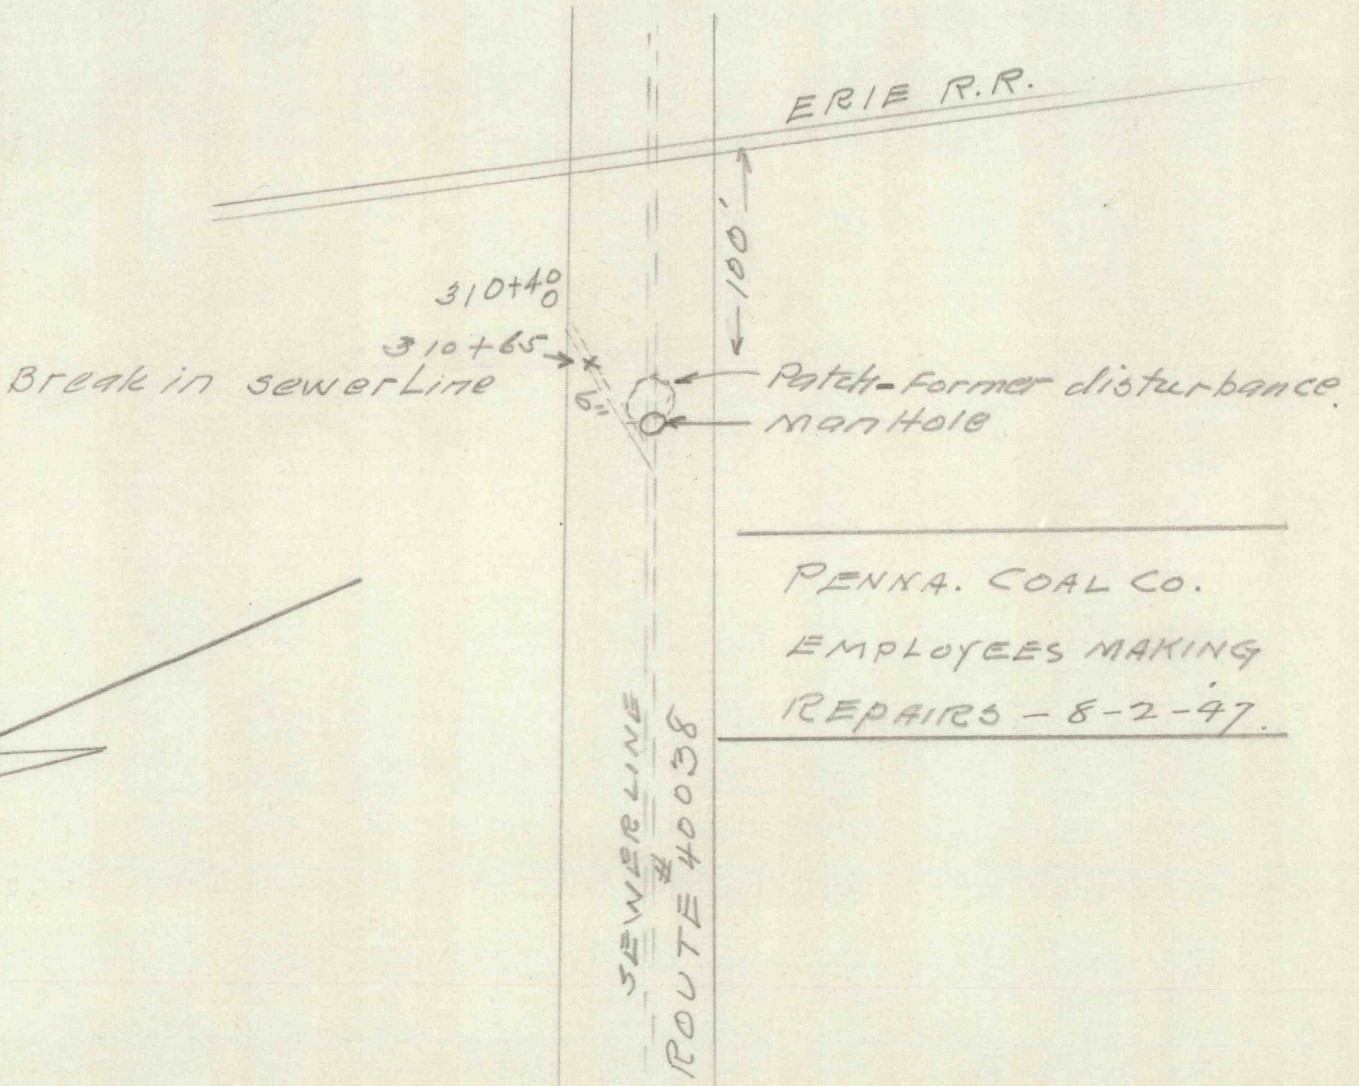 ERIE R.R.
100'
310+40
310+65
Break in sewer Line
6"
Patch-Former disturbance.
ManHole
PENNA. COAL CO.
EMPLOYEES MAKING
REPAIRS - 8-2-47.
SEWER LINE
ROUTE # 40038